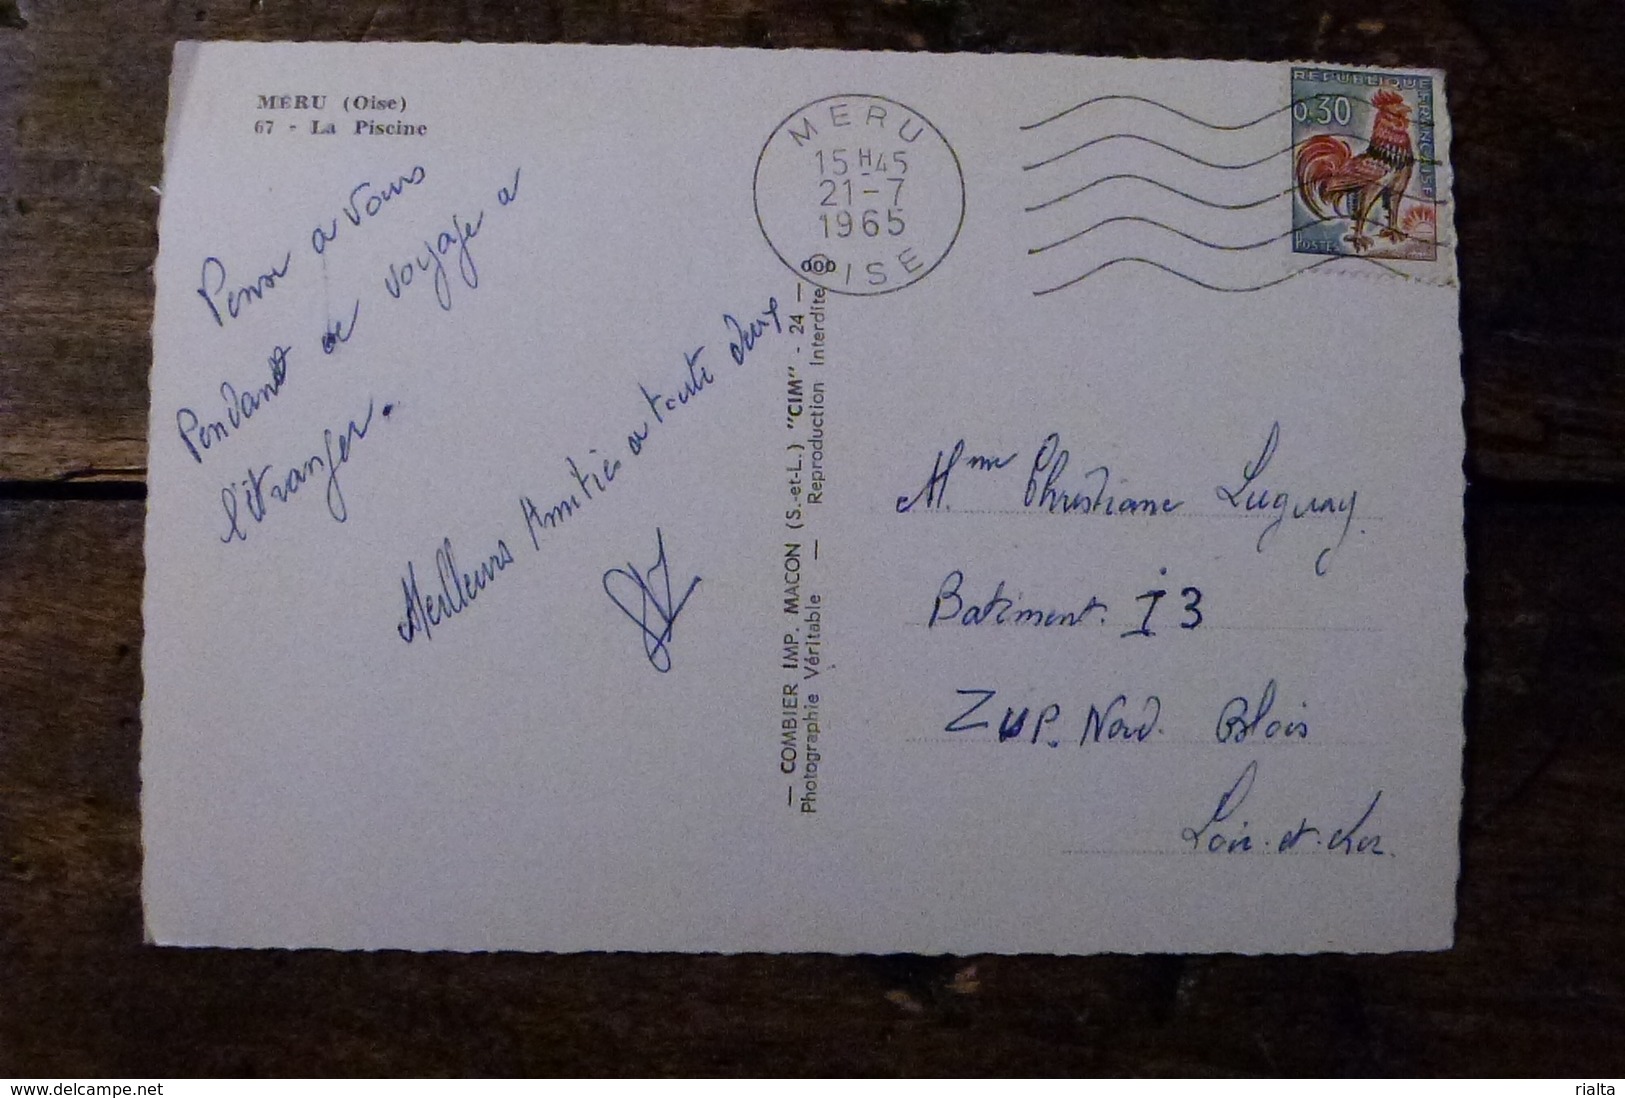 MÉRU (Oise)
67 - La Piscine
Penser a vous
Pendant ce voyage a
l'étranger.
Meilleurs Amitiés a toute deux
— COMBIER IMP. MACON (S.-et-L.) "CIM" - 24 —
Photographie Véritable — Reproduction Interdite
MERU
15H45
21-7
1965
OISE
REPUBLIQUE FRANÇAISE
0,30
POSTES
Mme Christiane Luguay
Batiment. I 3
ZUP. Nord. Blois
Loir-et-Cher.
www.delcampe.net
rialta